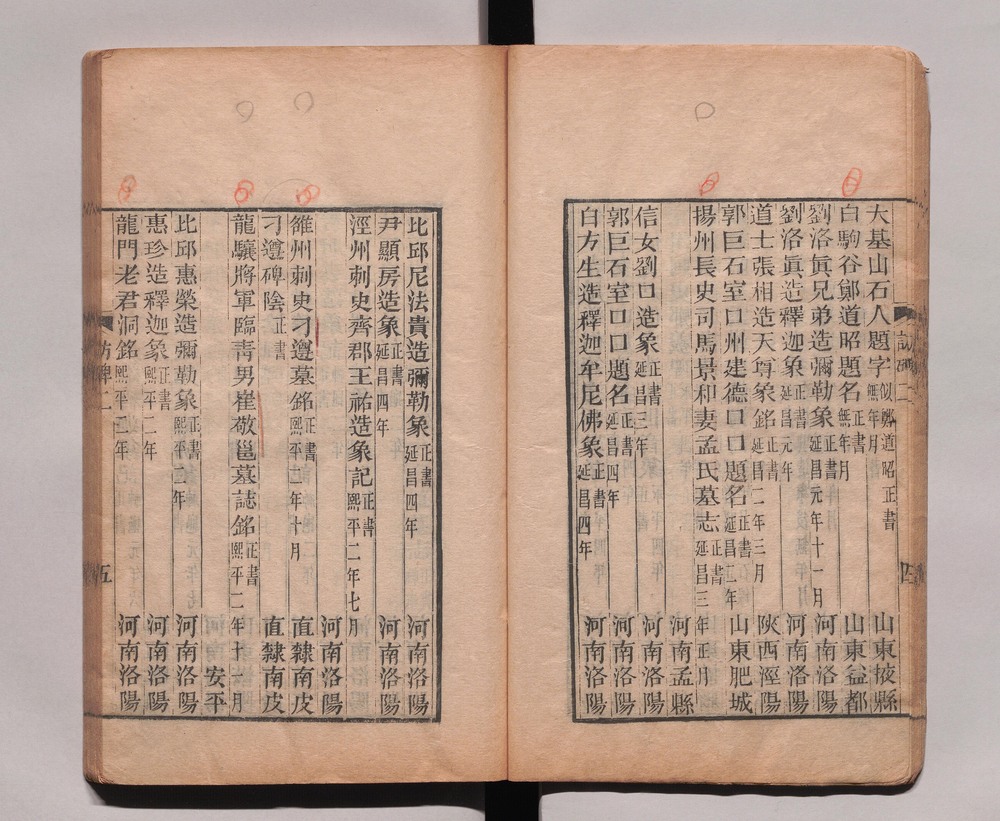 大基山石人題字似鄭道昭正書無年月 山東掖縣
白駒谷鄭道昭題名正書無年月 山東益都
劉洛眞兄弟造彌勒象正書延昌元年十一月 河南洛陽
劉洛眞造釋迦象正書延昌元年 河南洛陽
道士張相造天尊象銘正書延昌二年三月 陝西涇陽
郭巨石室口州建德口口題名正書延昌三年 山東肥城
揚州長史司馬景和妻孟氏墓志正書延昌三年正月
河南孟縣
信女劉口造象正書延昌三年 河南洛陽
郭巨石室口口題名正書延昌四年 河南洛陽
白方生造釋迦牟尼佛象正書延昌四年 河南洛陽
訪碑二
四
比邱尼法貴造彌勒象正書延昌四年 河南洛陽
尹顯房造象正書延昌四年 河南洛陽
涇州刺史齊郡王祐造象記正書熙平二年七月
河南洛陽
雒州刺史刁遵墓銘正書熙平二年十月 直隸南皮
刁遵碑陰正書 直隸南皮
龍驤將軍臨靑男崔敬邕墓誌銘正書熙平二年十一月
安平
比邱惠榮造彌勒象正書熙平二年 河南洛陽
惠珍造釋迦象正書熙平二年 河南洛陽
龍門老君洞銘熙平二年 河南洛陽
訪碑二
五